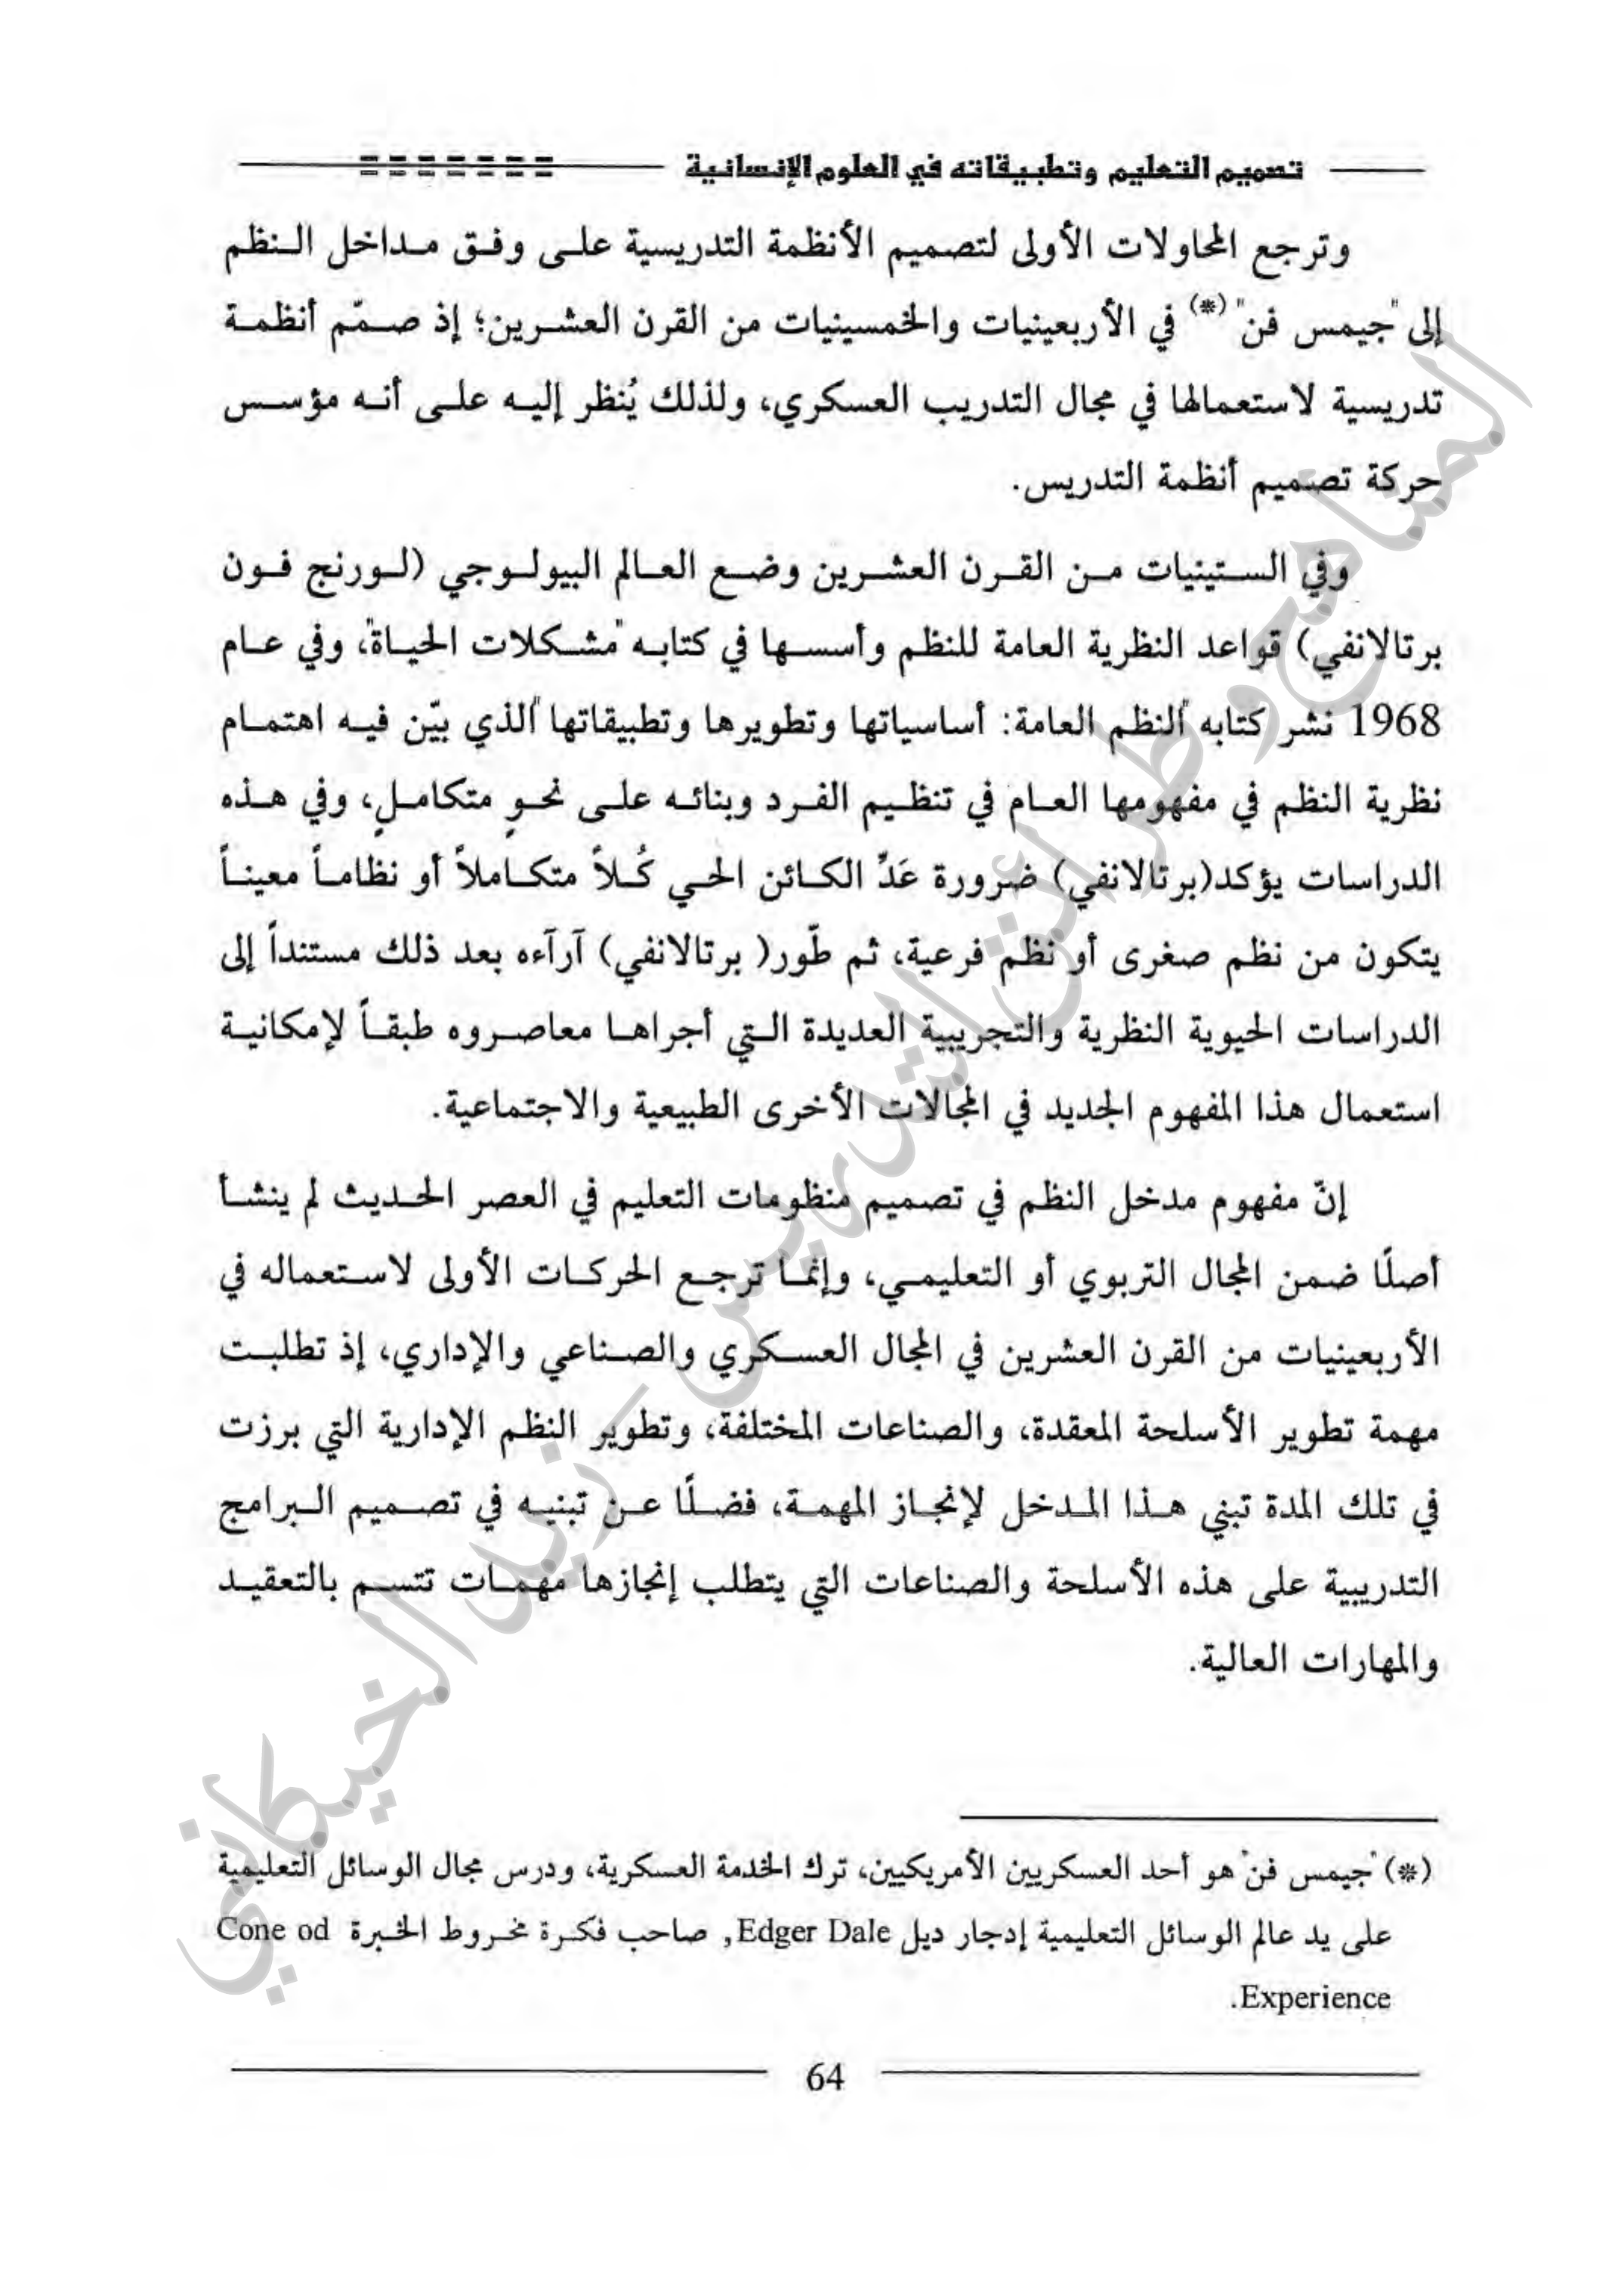 تصميم التعليم وتطبيقاته في العلوم الإنسانية
وترجع المحاولات الأولى لتصميم الأنظمة التدريسية على وفق مداخل النظم
إلى "جيمس فن" (*) في الأربعينيات والخمسينيات من القرن العشرين؛ إذ صمّم أنظمة
تدريسية لاستعمالها في مجال التدريب العسكري، ولذلك يُنظر إليه على أنه مؤسس
حركة تصميم أنظمة التدريس.
وفي الستينيات من القرن العشرين وضع العالم البيولوجي (لورنج فون
برتالانفي) قواعد النظرية العامة للنظم وأسسها في كتابه "مشكلات الحياة"، وفي عام
1968 نشر كتابه "النظم العامة: أساسياتها وتطويرها وتطبيقاتها" الذي بيّن فيه اهتمام
نظرية النظم في مفهومها العام في تنظيم الفرد وبنائه على نحوٍ متكاملٍ، وفي هذه
الدراسات يؤكد(برتالانفي) ضرورة عَدِّ الكائن الحي كُلاً متكاملاً أو نظاماً معيناً
يتكون من نظم صغرى أو نظم فرعية، ثم طّور( برتالانفي) آرآءه بعد ذلك مستنداً إلى
الدراسات الحيوية النظرية والتجريبية العديدة التي أجراها معاصروه طبقاً لإمكانية
استعمال هذا المفهوم الجديد في المجالات الأخرى الطبيعية والاجتماعية.
إنّ مفهوم مدخل النظم في تصميم منظومات التعليم في العصر الحديث لم ينشأ
أصلًا ضمن المجال التربوي أو التعليمي، وإنما ترجع الحركات الأولى لاستعماله في
الأربعينيات من القرن العشرين في المجال العسكري والصناعي والإداري، إذ تطلبت
مهمة تطوير الأسلحة المعقدة، والصناعات المختلفة، وتطوير النظم الإدارية التي برزت
في تلك المدة تبني هذا المدخل لإنجاز المهمة، فضلًا عن تبنيه في تصميم البرامج
التدريبية على هذه الأسلحة والصناعات التي يتطلب إنجازها مهمات تتسم بالتعقيد
والمهارات العالية.
(*) "جيمس فن" هو أحد العسكريين الأمريكيين، ترك الخدمة العسكرية، ودرس مجال الوسائل التعليمية
على يد عالم الوسائل التعليمية إدجار ديل Edger Dale, صاحب فكرة مخروط الخبرة Cone od
Experience.
64
المناهج وطرائق التدريس - زيد الخيكاني